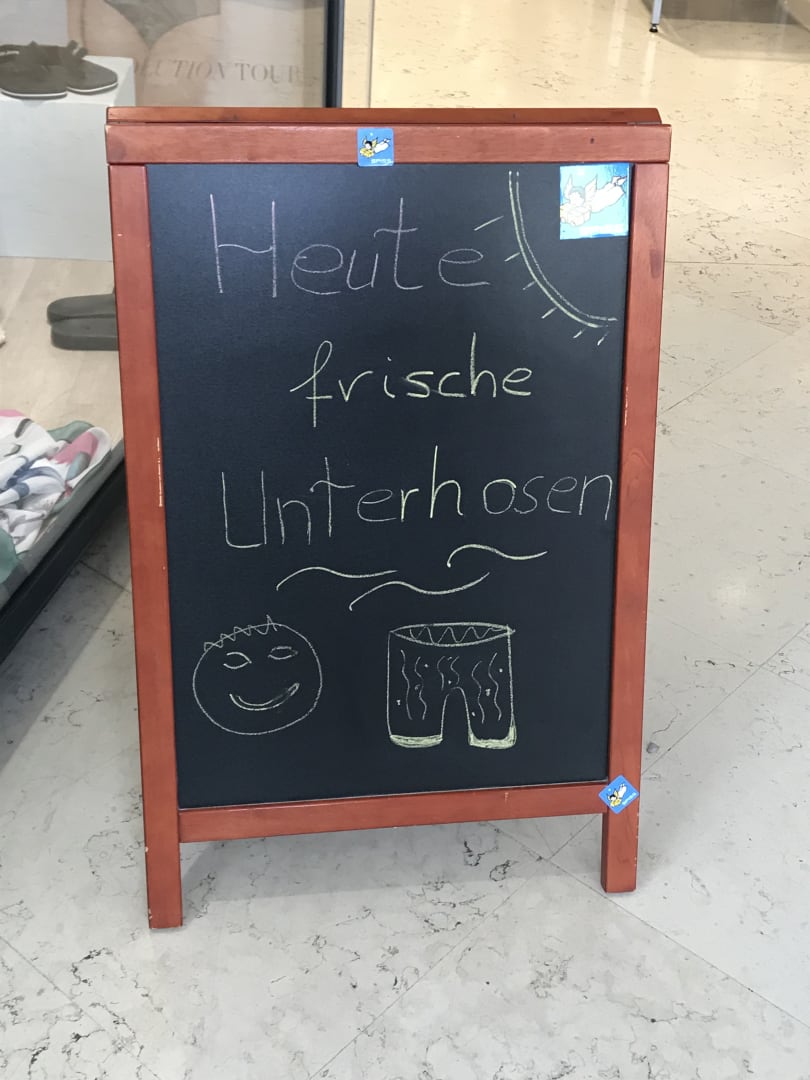 OLUTION TOUR
Heute
frische
Unterhosen